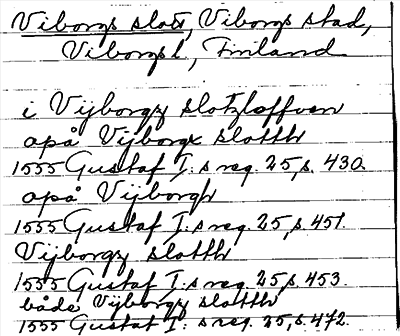 Viborgs slott, Viborgs stad,
Viborgs l, Finland
i Vijborgz slotzloffven
opå Vijborgx slotth
1555 Gustaf I:s reg. 25, s. 430.
opå Vijborgh
1555 Gustaf I:s reg. 25, s. 451.
Vijborgz slotth
1555 Gustaf I:s reg. 25, s. 453.
både Vijborgz slotth
1555 Gustaf I:s reg. 25, s. 472.